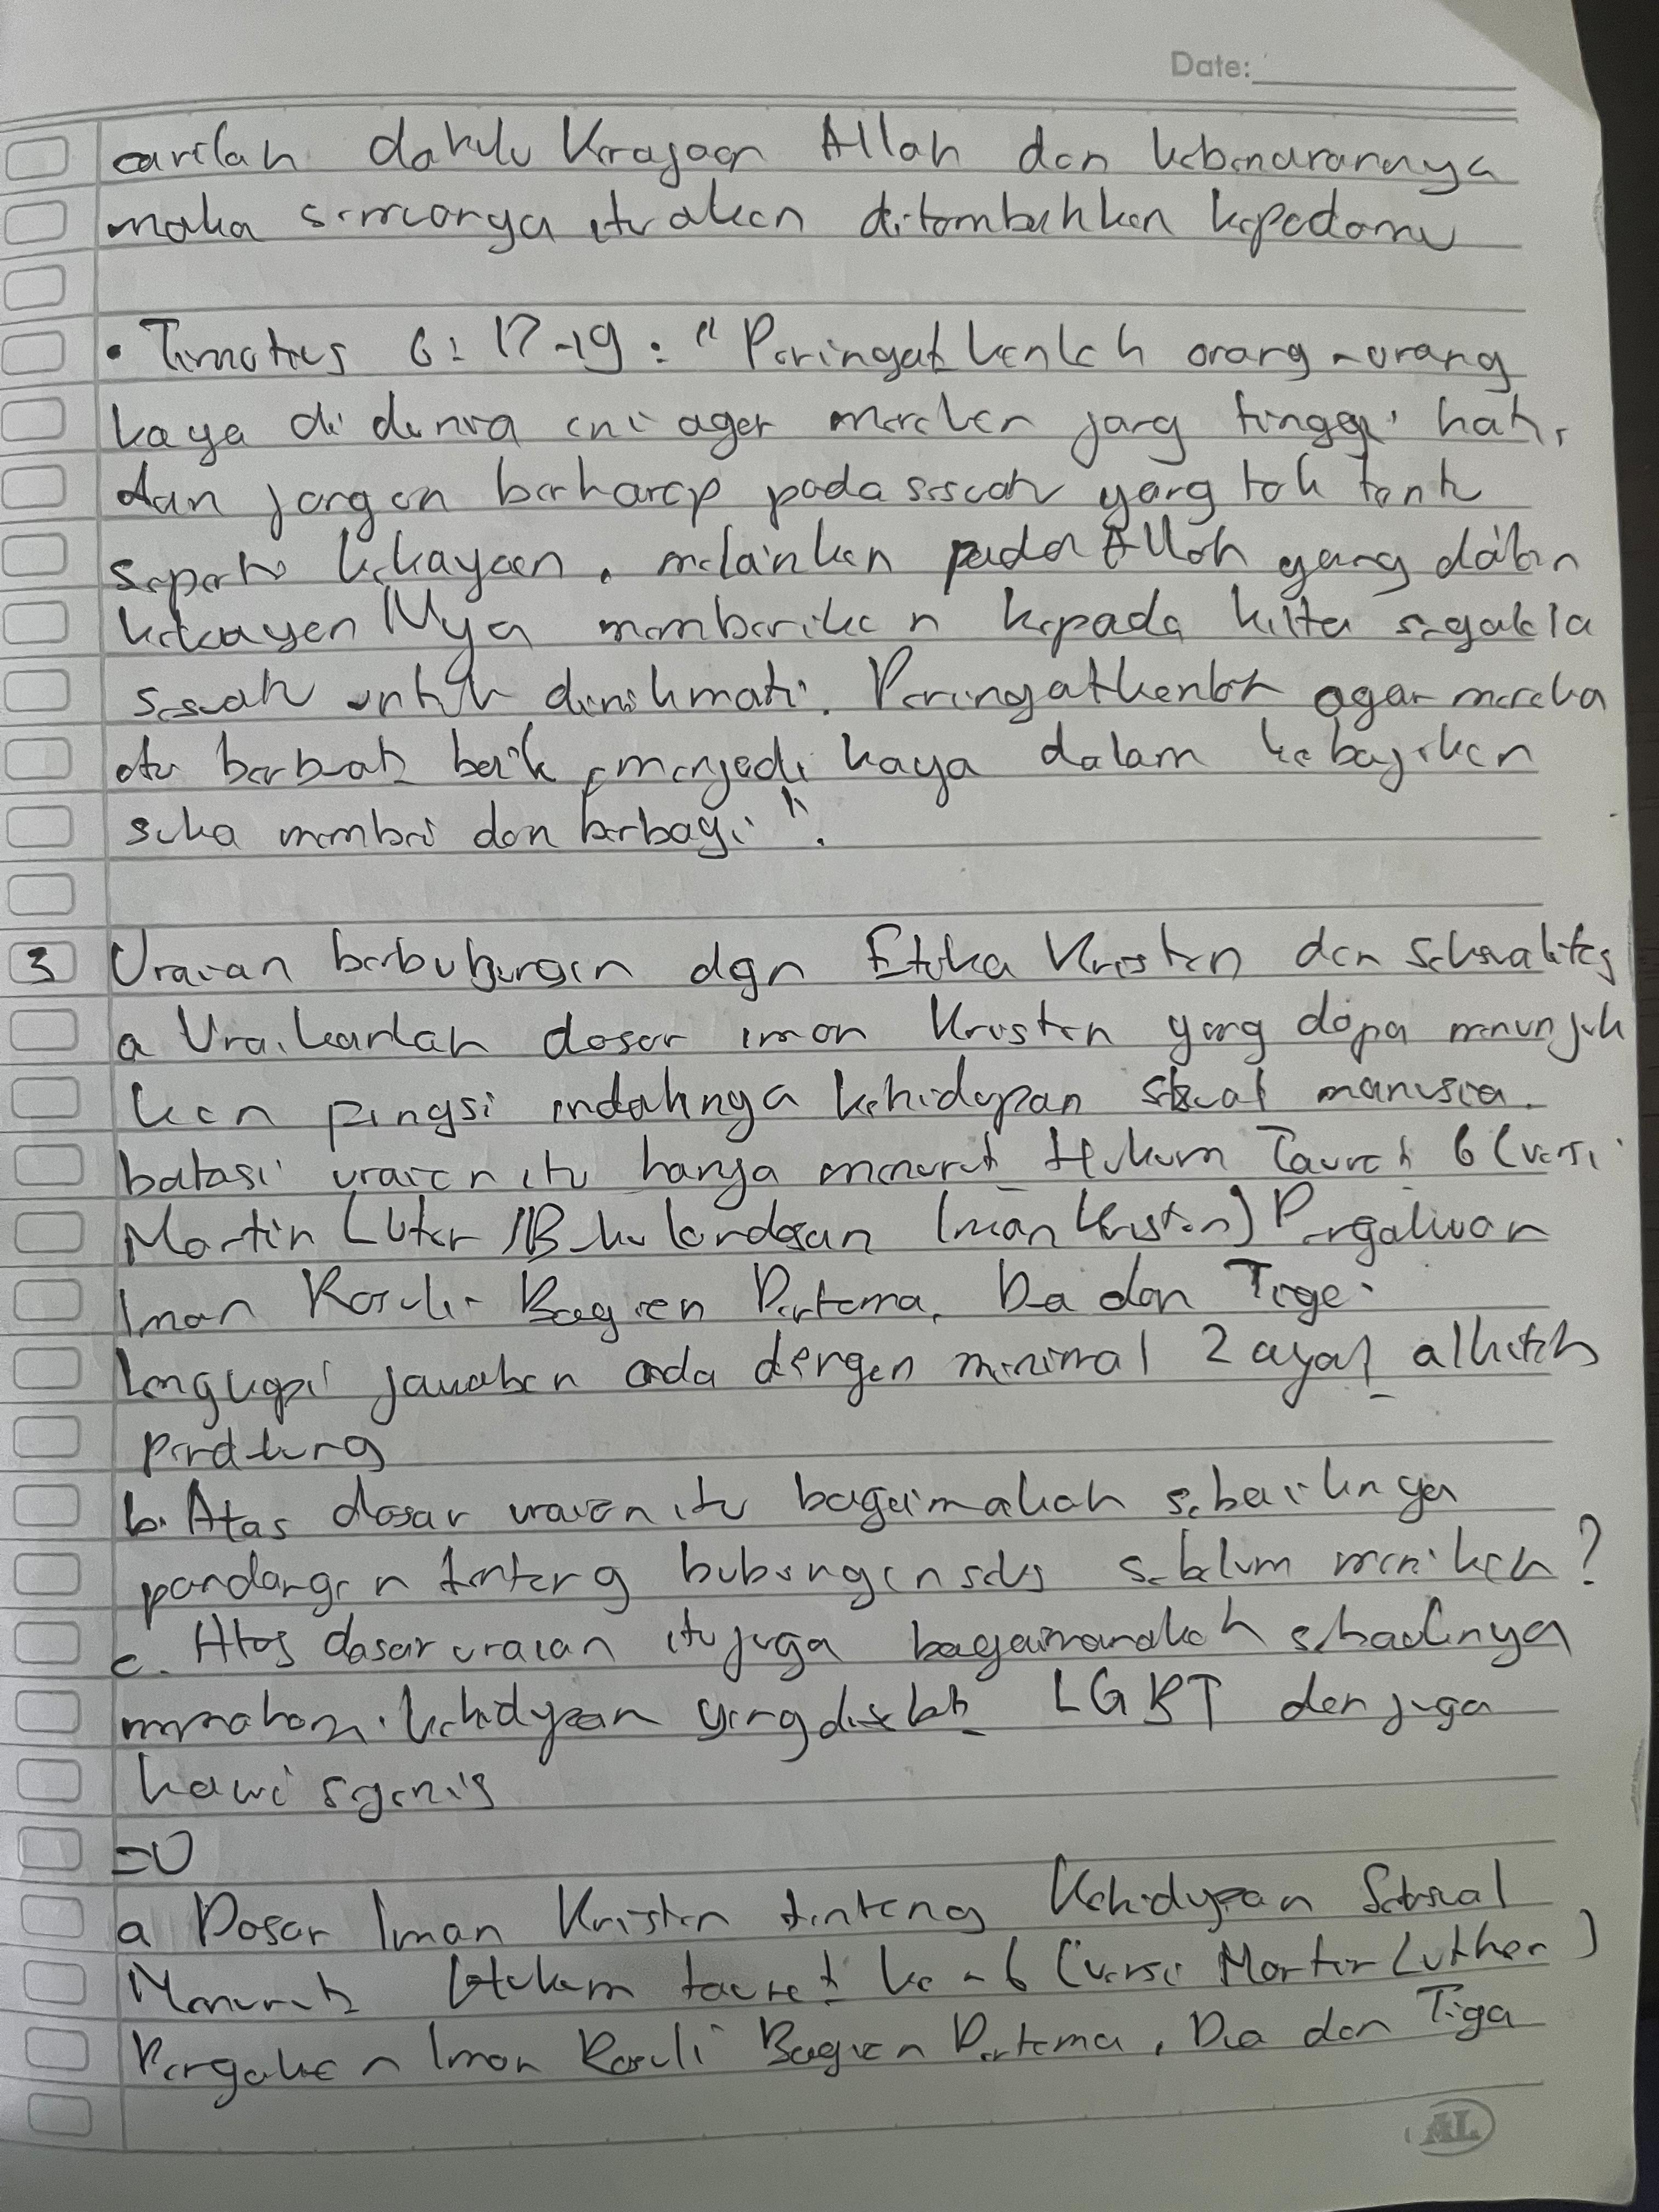 Date:
carilah dahulu Kerajaan Allah dan kebenarannya
maka semuanya itu akan ditambahkan kepadamu
• Timotius 6: 17-19 : "Peringatkanlah orang-orang
kaya di dunia ini agar mereka jang tinggi hati,
dan jangan berharap pada sesuatu yang tak tentu
seperti kekayaan, melainkan pada Allah yang dalam
kekayaan Nya memberikan kepada kita segala
sesuatu untuk dinikmati. Peringatkanlah agar mereka
itu berbuat baik, menjadi kaya dalam kebajikan
suka memberi dan berbagi".
3 Uraian berhubungan dgn Etika Kristen dan Seksualitas
a Uraikanlah dasar iman Kristen yang dapa menunjuk
kan pungsi indahnya kehidupan seksual manusia.
batasi uraian itu hanya menurut Hukum Taurat 6 (versi
Martin Luter /Buku landasan Iman Kristen) Pengakuan
Iman Rasuli Bagian Pertama, Dua dan Tiga.
Lengkapi jawaban anda dengan minimal 2 ayat alkitab
pendukung
b. Atas dasar uraian itu bagaimakah sebaiknya
pandangan tentang hubungan seks sebelum menikah?
c. Atas dasar uraian itu juga bagaimanakah sebaiknya
memahami kehidupan yang disebut LGBT dan juga
kawi sejenis
=>
a Dasar Iman Kristen tentang Kehidupan Seksual
Menurut Hukum taurat ke-6 (versi Martin Luther)
Pengakuan Iman Rasuli Bagian Pertama, Dua dan Tiga
AL